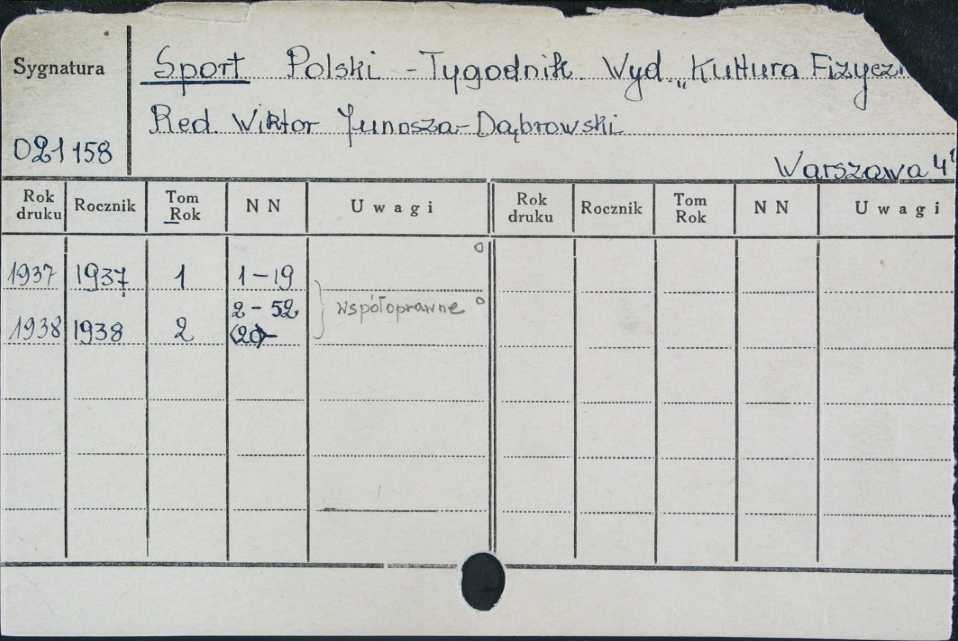 Sygnatura
Sport Polski - Tygodnik. Wyd. „Kultura Fizycz
Red. Wiktor Junosza-Dąbrowski
021158
Warszawa 4°
Rok druku Rocznik Tom Rok NN Uwagi Rok druku Rocznik Tom Rok NN Uwagi
1937 1937 1 1-19
współoprawne
1938 1938 2 2-52
(20)